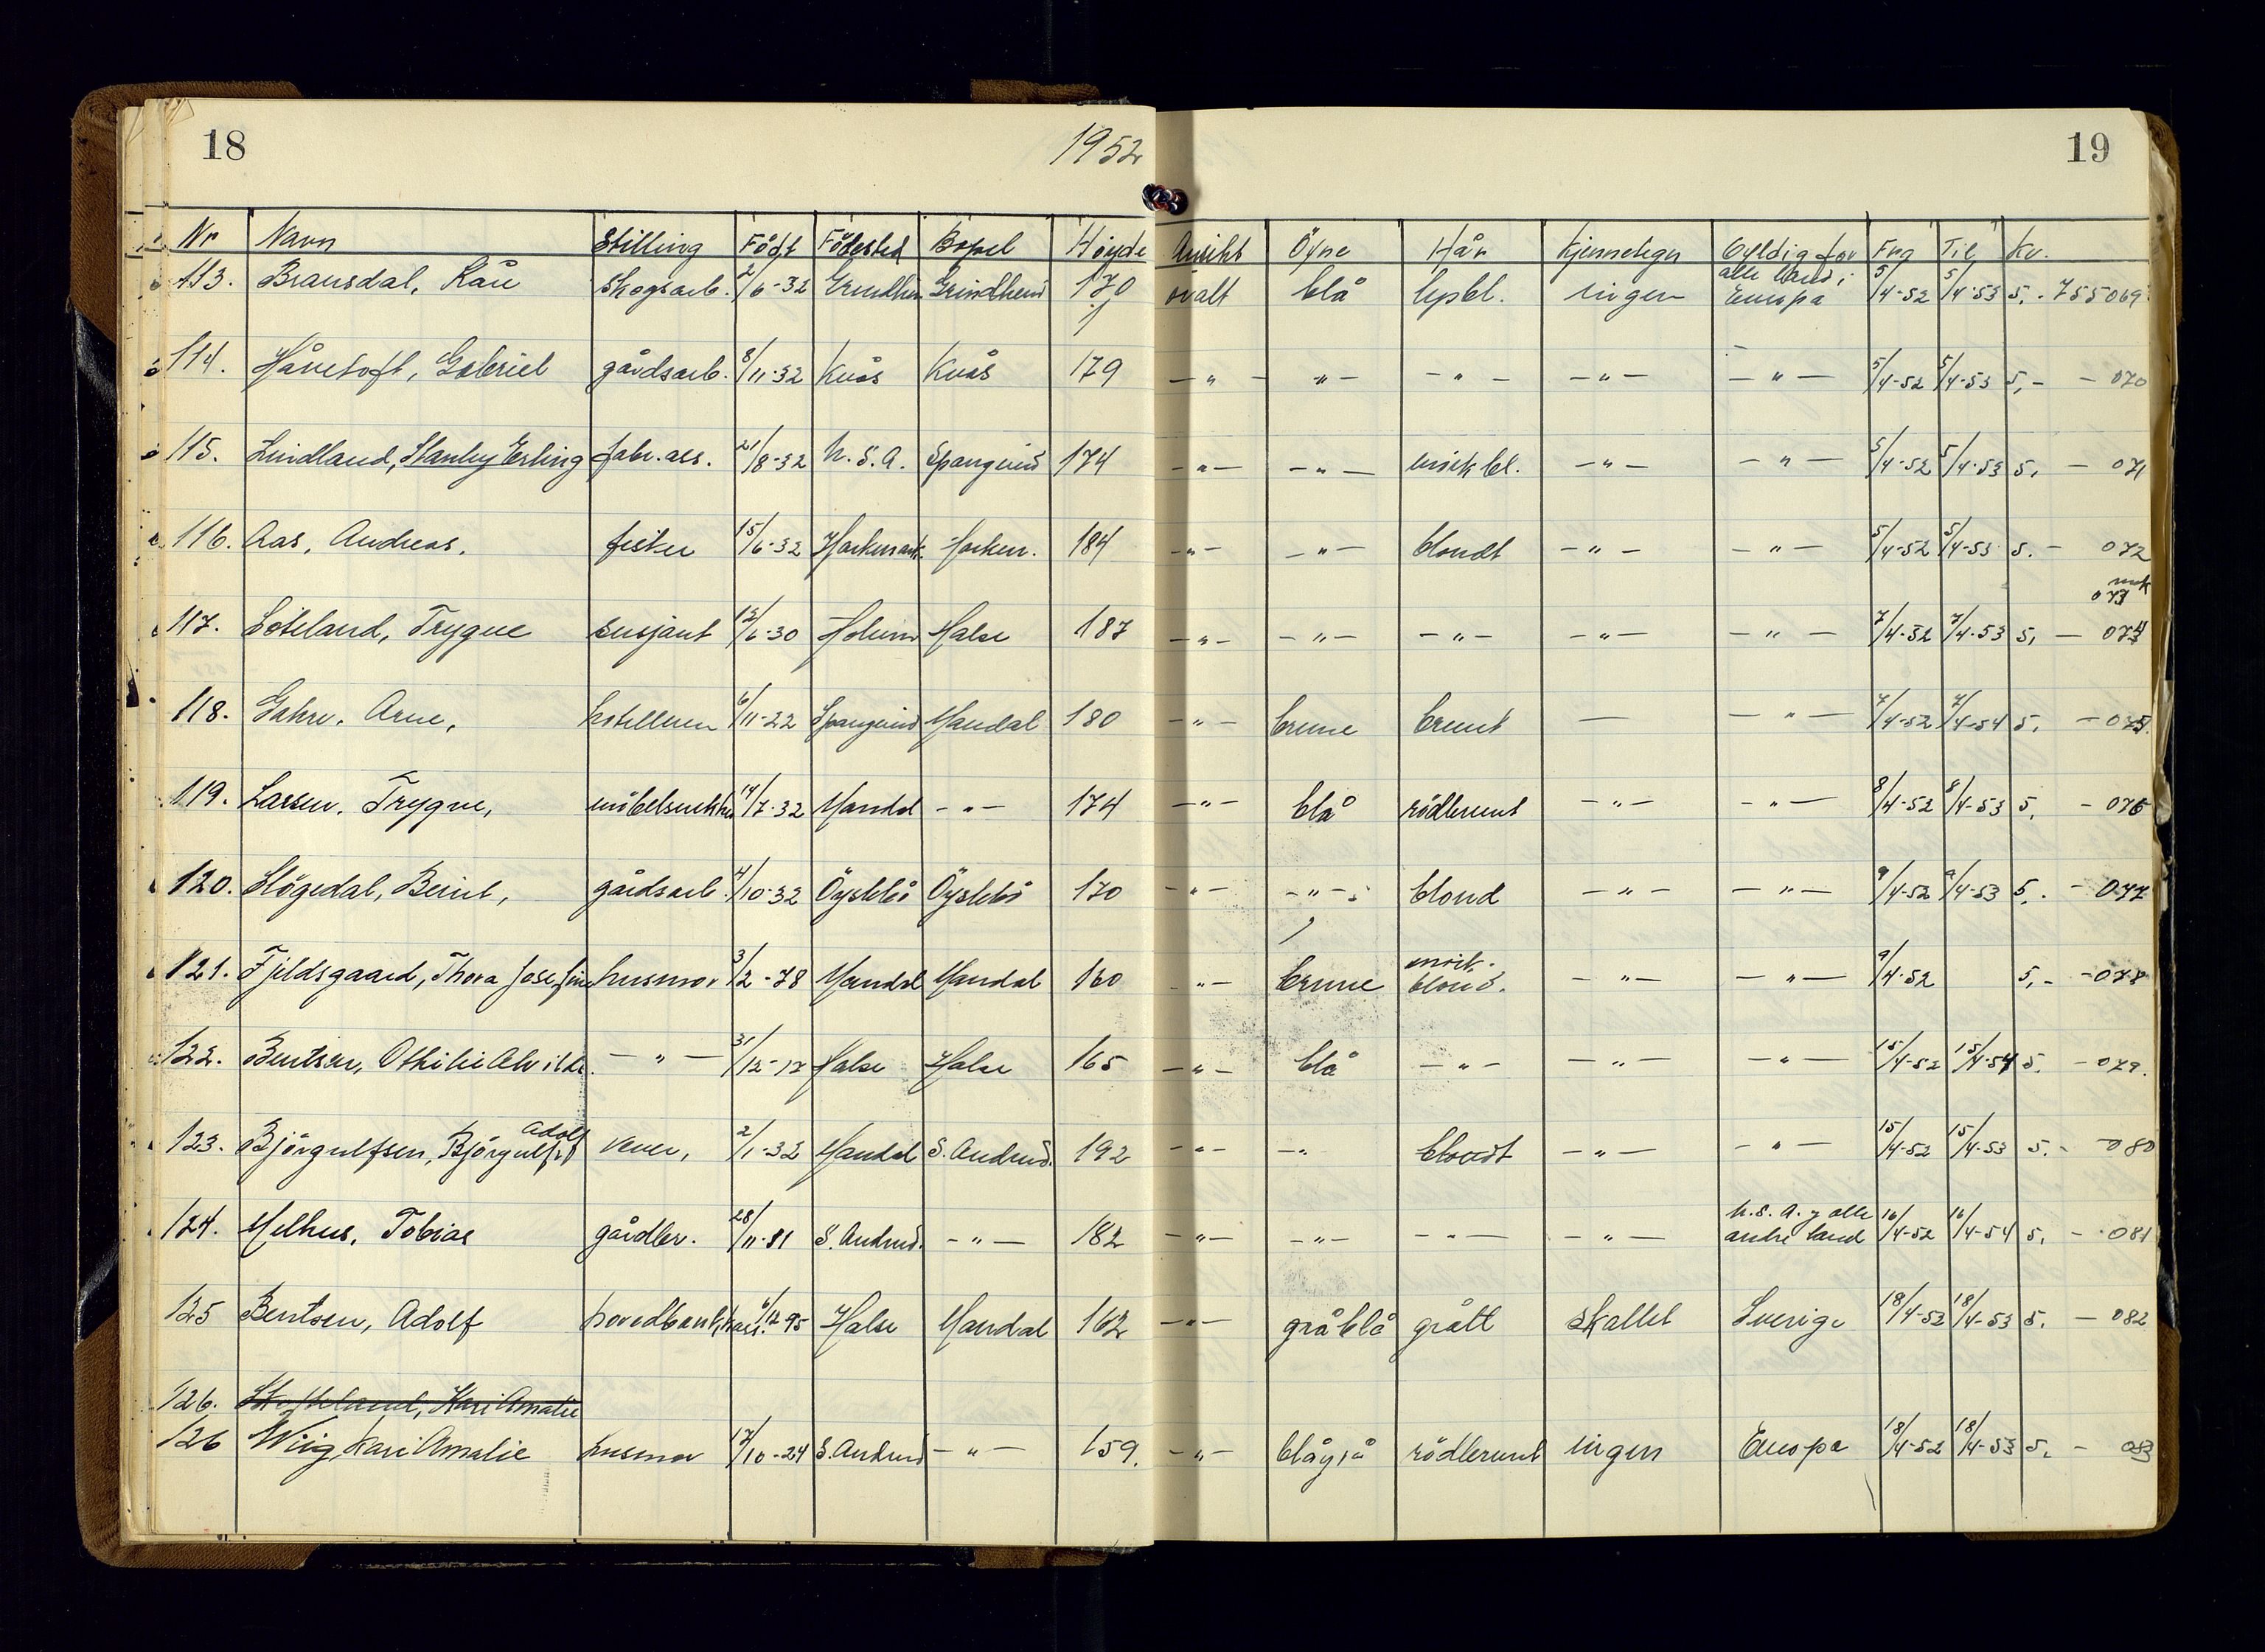 18 1952 19
Nr Navn Stilling Född Födested Bopel Høyde Ansikt Öyne Hår Kjennetegn Gyldig for Fra Til Kr.
113. Bransdal, Kåre skogsarb. 2/6-32 Grindheim Grindheim 170 ovalt blå lysbl. ingen alle land i Europa 5/4-52 5/4-53 5,- 755069
114. Håvetoft, Gabriel gårdsarb. 8/11-32 Kvås Kvås 179 — " — " — — " — — " — — " — 5/4-52 5/4-53 5,- — 070
115. Lindland, Stanley Erling fabr. ass. 21/8-32 U.S.A. Spangereid 174 — " — — " — mörk bl. — " — — " — 5/4-52 5/4-53 5, — 071
116. Aas, Andreas. fisker 15/6-32 Harkmark Harkm. 184 — " — — " — blondt — " — — " — 5/4-52 5/4-53 5. — 072
mak 073
117. Löteland, Trygve sersjant 13/6-30 Holum Halse 187 — " — — " — — " — — " — — " — 7/4-52 7/4-53 5, — 074
118. Gahre, Arne, hotelleier 6/11-22 Spangereid Mandal 180 — " — brune brunt — — " — 7/4-52 7/4-54 5, — 075.
119. Larsen, Trygve, möbelsnekker 14/7-32 Mandal — " — 174 — " — blå rödbrunt — " — — " — 8/4-52 8/4-53 5, — 076
120. Högedal, Berint, gårdsarb. 4/10-32 Öyslebö Öyslebö 170 — " — — " — blond — " — — " — 9/4-52 9/4-53 5,- — 077
121. Fjeldsgaard, Thora Josefine husmor 3/2-78 Mandal Mandal 160 — " — brune mörk. blond. — " — — " — 9/4-52 5,- — 078
122. Bentsen, Othilie Alvilde. — " — 31/12-17 Halse Halse 165 — " — blå — " — — " — — " — 15/4-52 15/4-54 5. — 079.
123. Björgulfsen, Björgulf Adolf vever, 2/1-32 Mandal S. Audned. 192 — " — — " blondt — " — — " — 15/4-52 15/4-53 5.- — 080
124. Melhus, Tobias gårdbr. 28/11-81 S. Audned. — " — 182 — " — — " — — " — — " — U.S.A. og alle andre land 16/4-52 16/4-54 5, — 081
125 Bentsen, Adolf hovedbankkass. 6/12-95 Halse Mandal 162 — " — gråblå grått skallet Sverige 18/4-52 18/4-53 5. — 082
126. Skofteland, Kari Amalie
126 Wiig, Kari Amalie husmor 17/10-24 S. Audned — " — 159. — " — blågrå rödbrunt ingen Europa 18/4-52 18/4-53 5, — 083